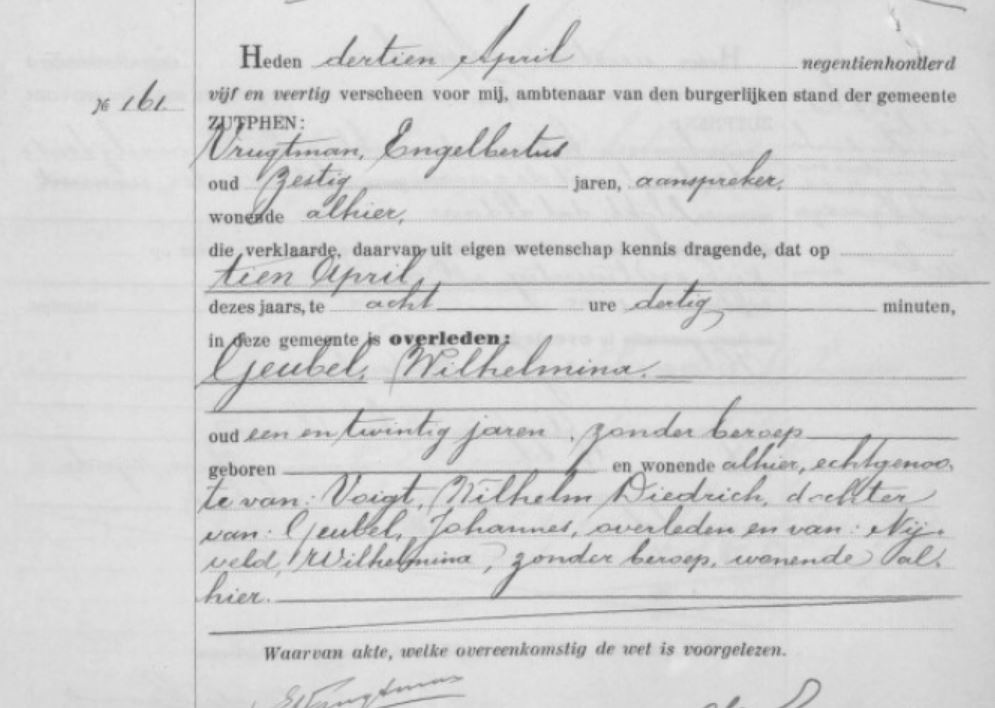 Heden dertien April negentienhonderd
№ 161. vijf en veertig verscheen voor mij, ambtenaar van den burgerlijken stand der gemeente
ZUTPHEN:
Vrugtman, Engelbertus
oud zestig jaren, aanspreker,
wonende alhier,
die verklaarde, daarvan uit eigen wetenschap kennis dragende, dat op
tien April,
dezes jaars, te acht ure dertig minuten,
in deze gemeente is overleden:
Geubel, Wilhelmina.
oud een en twintig jaren, zonder beroep
geboren en wonende alhier, echtgenoo-
te van: Voigt, Wilhelm Diedrich, dochter
van: Geubel, Johannes, overleden en van: Nij-
veld, Wilhelmina, zonder beroep, wonende al-
hier.
Waarvan akte, welke overeenkomstig de wet is voorgelezen.
EVrugtman